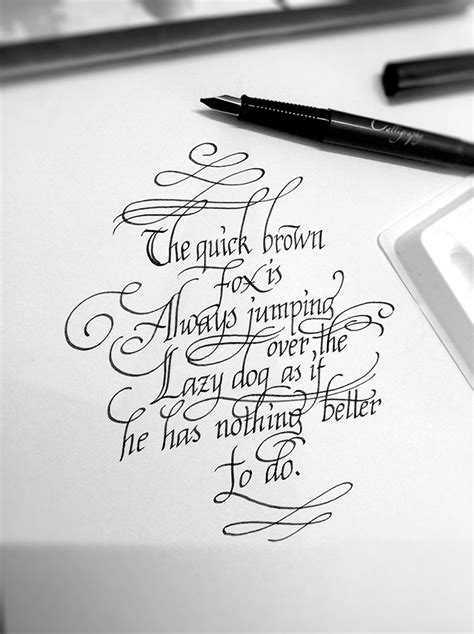 Calligraphy
The quick brown
Fox is
Always jumping
over the
Lazy dog as if
he has nothing better
to do.